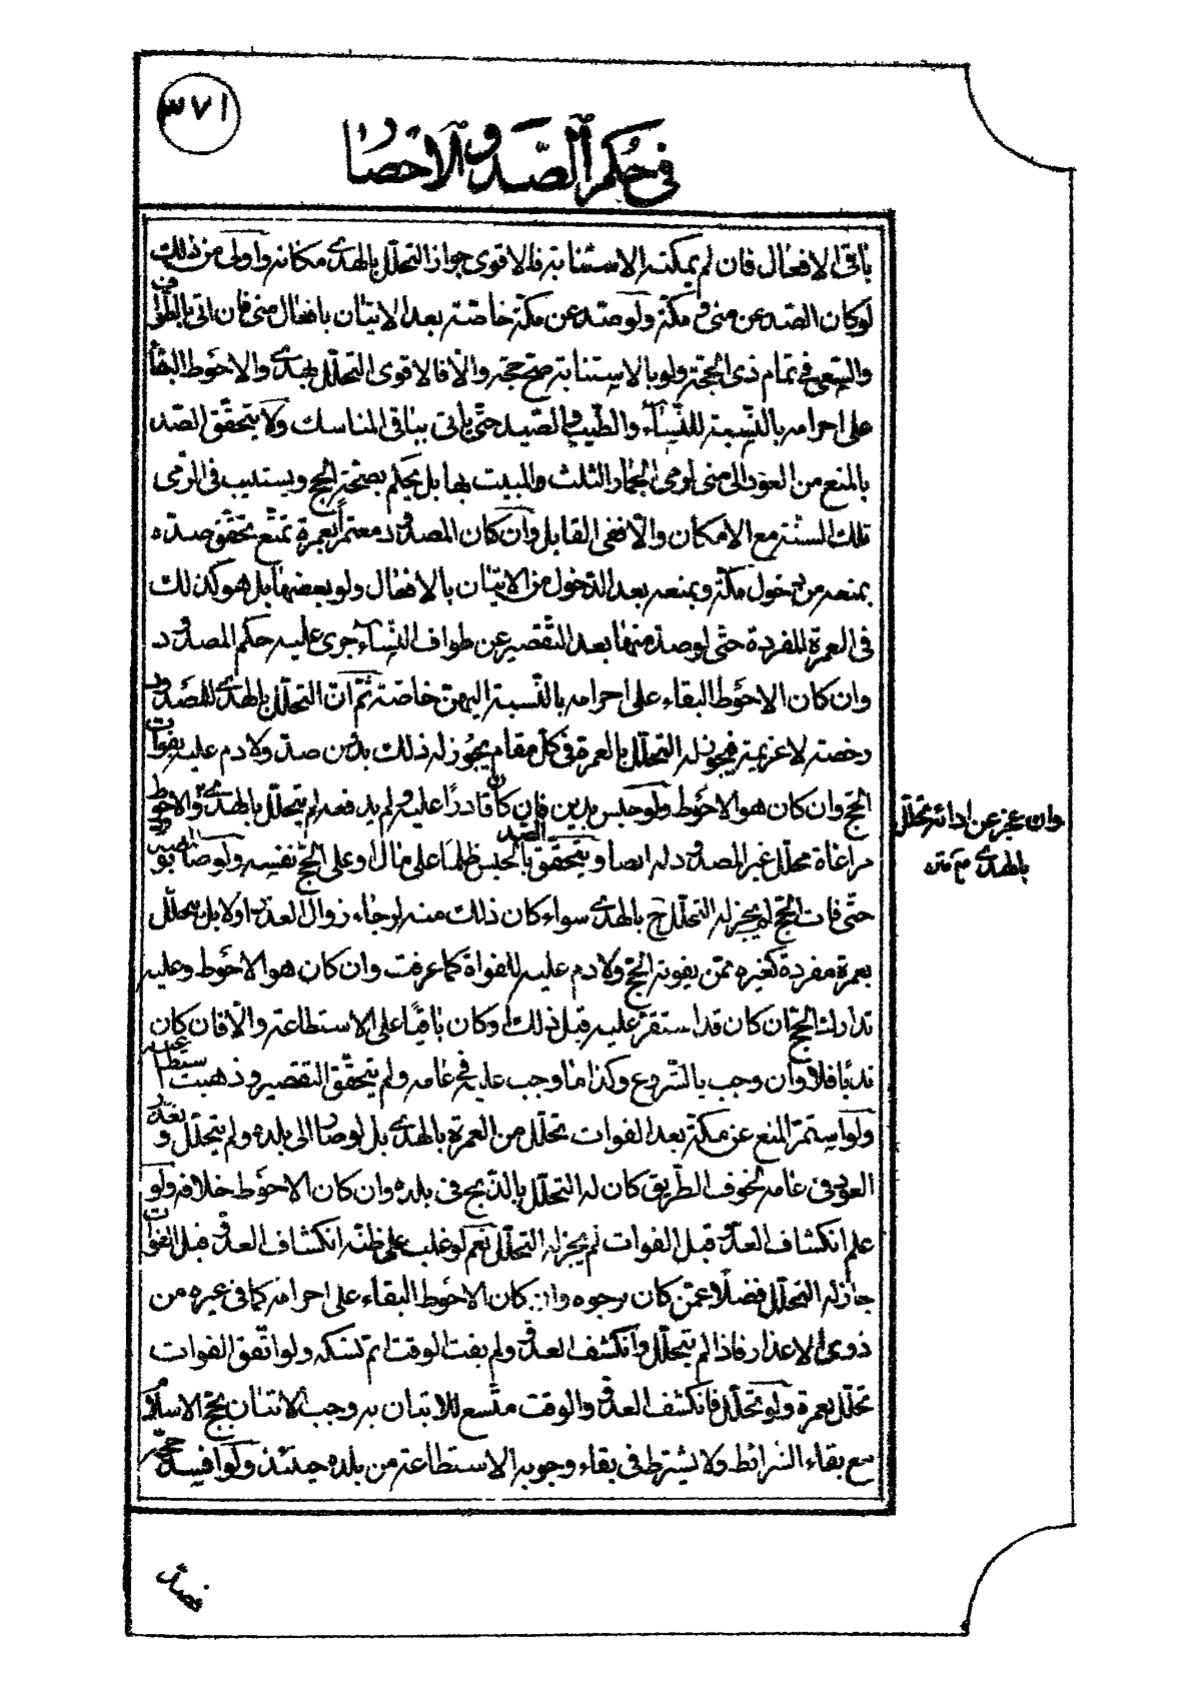 ٣٧١
في حكم الصد والاحصار
باقي الافعال فان لم يمكنه الاستنابة فالاقوى جواز التحلل بالهدى مكانه واولى من ذلك
لو كان الصد عن منى و مكة ولو صد عن مكة خاصة بعد الاتيان بافعال منى فان اتى بالطواف
والسعى في تمام ذى الحجة ولو بالاستنابة صح حجه والا فالاقوى التحلل بهدى والاحوط البقاء
على احرامه بالنسبة للنساء والطيب والصيد حتى ياتى بباقى المناسك ولا يتحقق الصد
بالمنع من العود الى منى لرمى الجمار الثلث والمبيت بها بل يحكم بصحة الحج ويستنيب في الرمى
تلك السنة مع الامكان والا ففى القابل وان كان المصدود معتمرا بعمرة تمتع تحقق صده
بمنعه من دخول مكة وبمنعه بعد الدخول من الاتيان بالافعال ولو بعضها بل هو كذلك
في العمرة المفردة حتى لو صد منها بعد التقصير عن طواف النساء جرى عليه حكم المصدود
وان كان الاحوط البقاء على احرامه بالنسبة اليهن خاصة ثم ان التحلل بالهدى للمصدود
رخصة لا عزيمة فيجوز له التحلل بالعمرة في كل مقام يجوز له ذلك بدون صد ولا دم عليه بفوات
الحج وان كان هو الاحوط ولو حبس بدين فان كان قادرا عليه ولم يدفعه لم يتحلل بالهدى والاحوط
مراعاة محلل غير المصدود له ايضا ويتحقق الصد بالحبس ظلما على مال او على الحج نفسه ولو صابر المصدود
حتى فات الحج لم يجز له التحلل ح بالهدى سواء كان ذلك منه لرجاء زوال العذر او لا بل يتحلل
بعمرة مفردة كغيره ممن يفوته الحج ولا دم عليه للفواة كما عرفت وان كان هو الاحوط وعليه
تدارك الحج ان كان قد استقر عليه قبل ذلك او كان باقيا على الاستطاعة والا فان كان
ندبا فلا وان وجب بالشروع وكذا ما وجب عليه في عامه ولم يتحقق التقصير وذهبت استطاعته
ولو استمر المنع عن مكة بعد الفوات تحلل من العمرة بالهدى بل لو صار الى بلده ولم يتحلل وتعذر
العود في عامه لخوف الطريق كان له التحلل بالذبح في بلده وان كان الاحوط خلافه ولو
علم انكشاف العدو قبل الفوات لم يجز له التحلل نعم لو غلب على ظنه انكشاف العدو قبل الفوات
جاز له التحلل فضلا عمن كان يرجوه وان كان الاحوط البقاء على احرامه كما في غيره من
ذوى الاعذار فاذا لم يتحلل وانكشف العدو ولم يفت الوقت اتم نسكه ولو اتفق الفوات
تحلل بعمرة ولو تحلل فانكشف العدو والوقت متسع للاتيان به وجب الاتيان بحج الاسلام
مع بقاء الشرائط ولا يشترط في بقاء وجوبه الاستطاعة من بلده حينئذ ولو افسد حجه
وان عجز عن ادائه تحلل
بالهدى
فصد